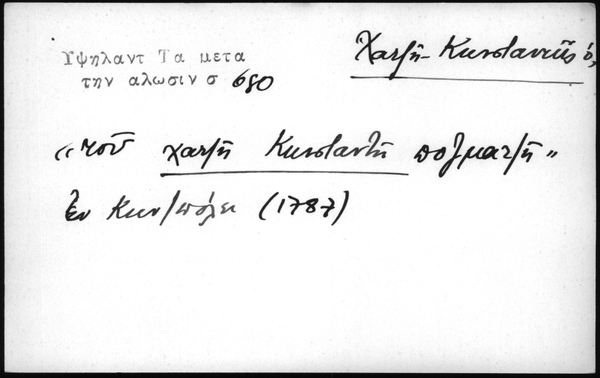 Χατζῆ-Κωνσταντῆς ὁ,
Υψηλαντ Τα μετα
την αλωσιν σ 680
"τοῦ χατζῆ Κωνσταντῆ ποζματζῆ"
ἐν Κων/πόλει (1787)